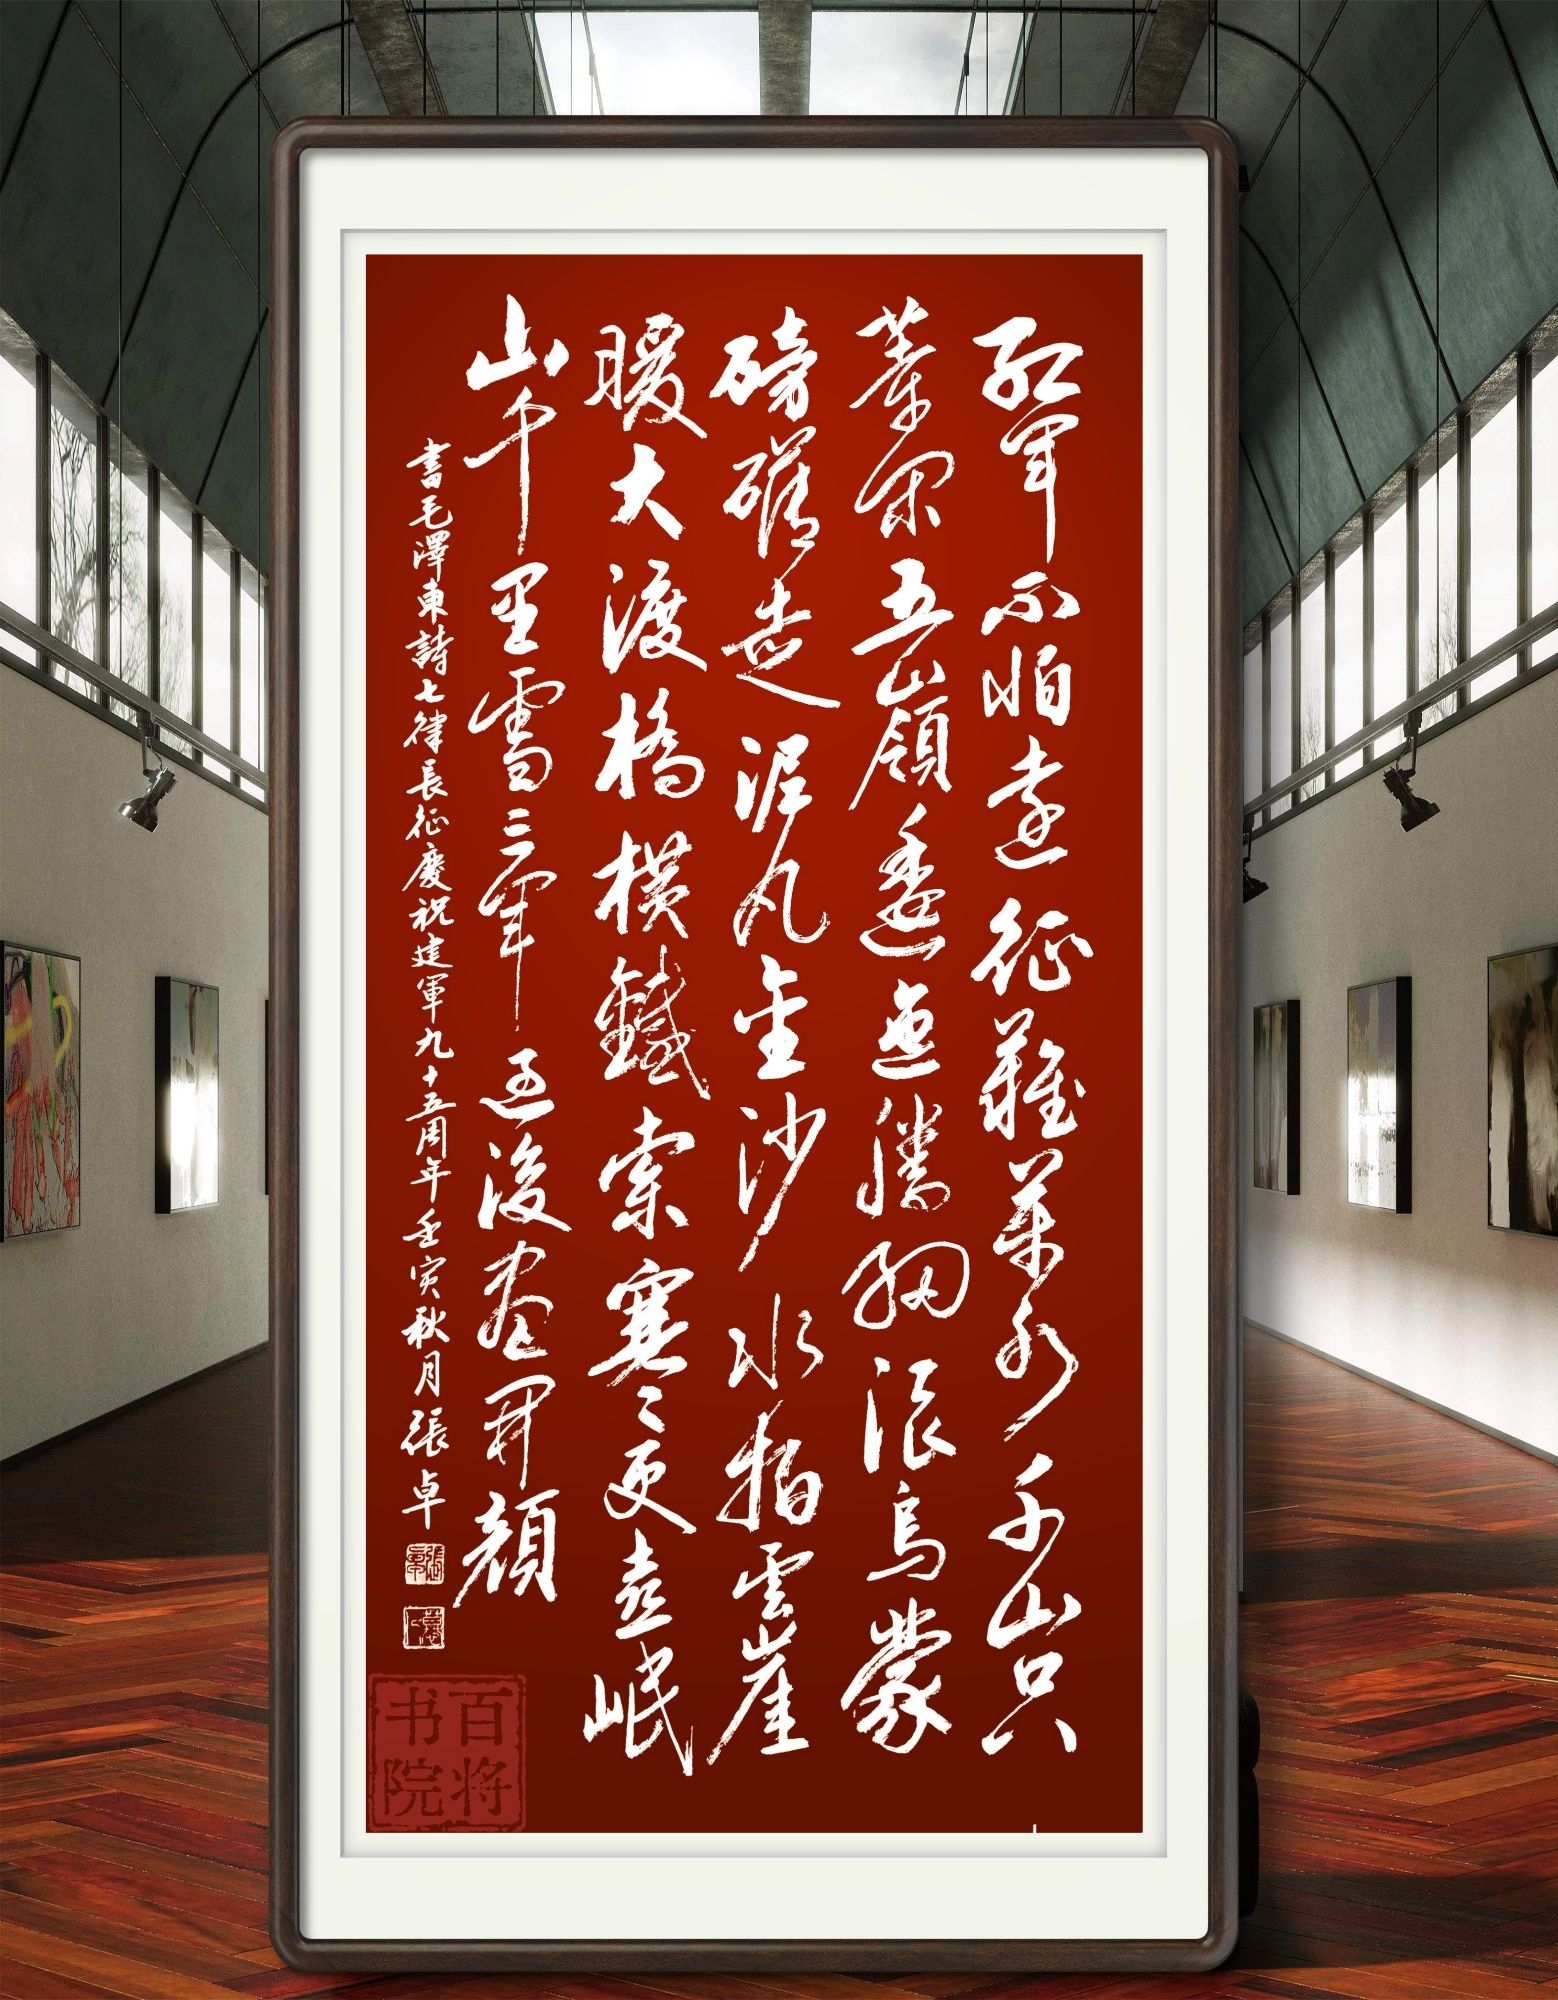 紅軍不怕遠征難萬水千山只
等閑五嶺逶迤騰細浪烏蒙
磅礴走泥丸金沙水拍雲崖
暖大渡橋橫鐵索寒更喜岷
山千里雪三軍過後盡開顏
書毛澤東詩七律長征慶祝建軍九十五周年壬寅秋月張卓
百将书院